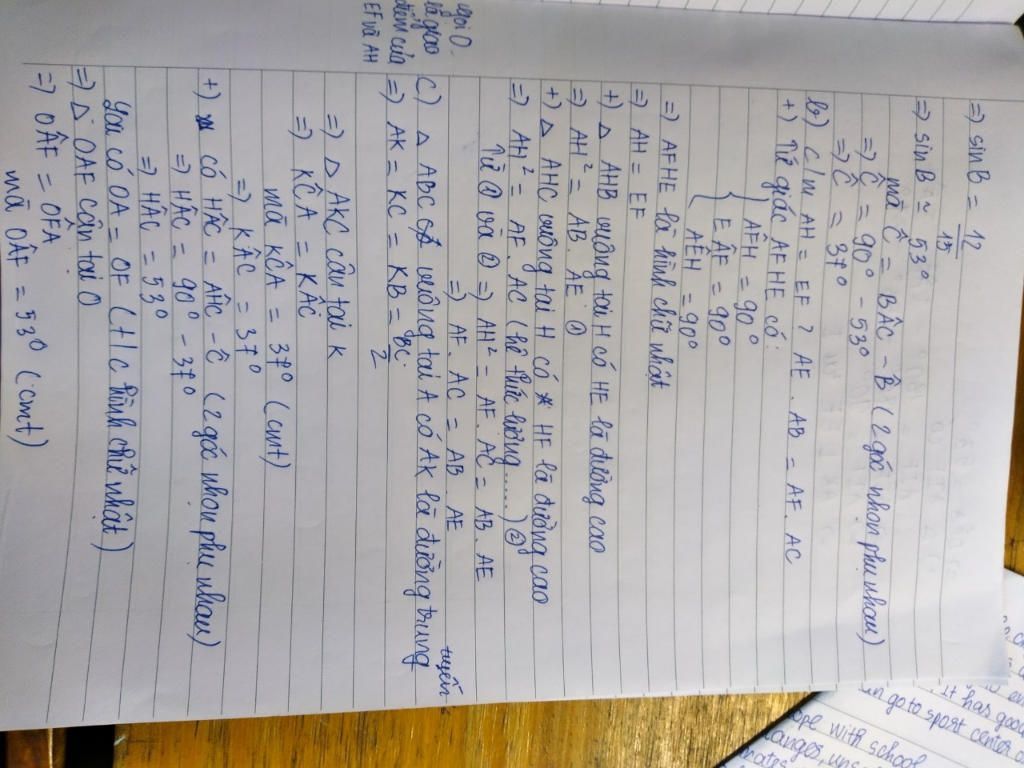 => sin B = 12/15
=> sin B ≃ 53°
mà Ĉ = BÂC - B̂ (2 góc nhọn phụ nhau)
=> Ĉ = 90° - 53°
=> Ĉ = 37°
b) C/m AH = EF ? AE . AB = AF . AC
+) Tứ giác AFHE có:
{ AF̂H = 90°
EÂF = 90°
AÊH = 90°
=> AFHE là hình chữ nhật
=> AH = EF
+) △ AHB vuông tại H có HE là đường cao
=> AH² = AB . AE ①
+) △ AHC vuông tại H có HF là đường cao
=> AH² = AF . AC (hệ thức lượng.....) ②
Từ ① và ② => AH² = AF . AC = AB . AE
=> AF . AC = AB . AE
C) △ ABC vuông tại A có AK là đường trung tuyến
=> AK = KC = KB = BC/2
=> △ AKC cân tại K
=> KĈA = KÂC
mà KĈA = 37° (cmt)
=> KÂC = 37°
+) có HÂC = AĤC - Ĉ (2 góc nhọn phụ nhau)
=> HÂC = 90° - 37°
=> HÂC = 53°
Gọi O là giao điểm của EF và AH
Ta có OA = OF (t/c hình chữ nhật)
=> △ OAF cân tại O
=> OÂF = OF̂A
mà OÂF = 53° (cmt)
It has good
go to sport center
with school